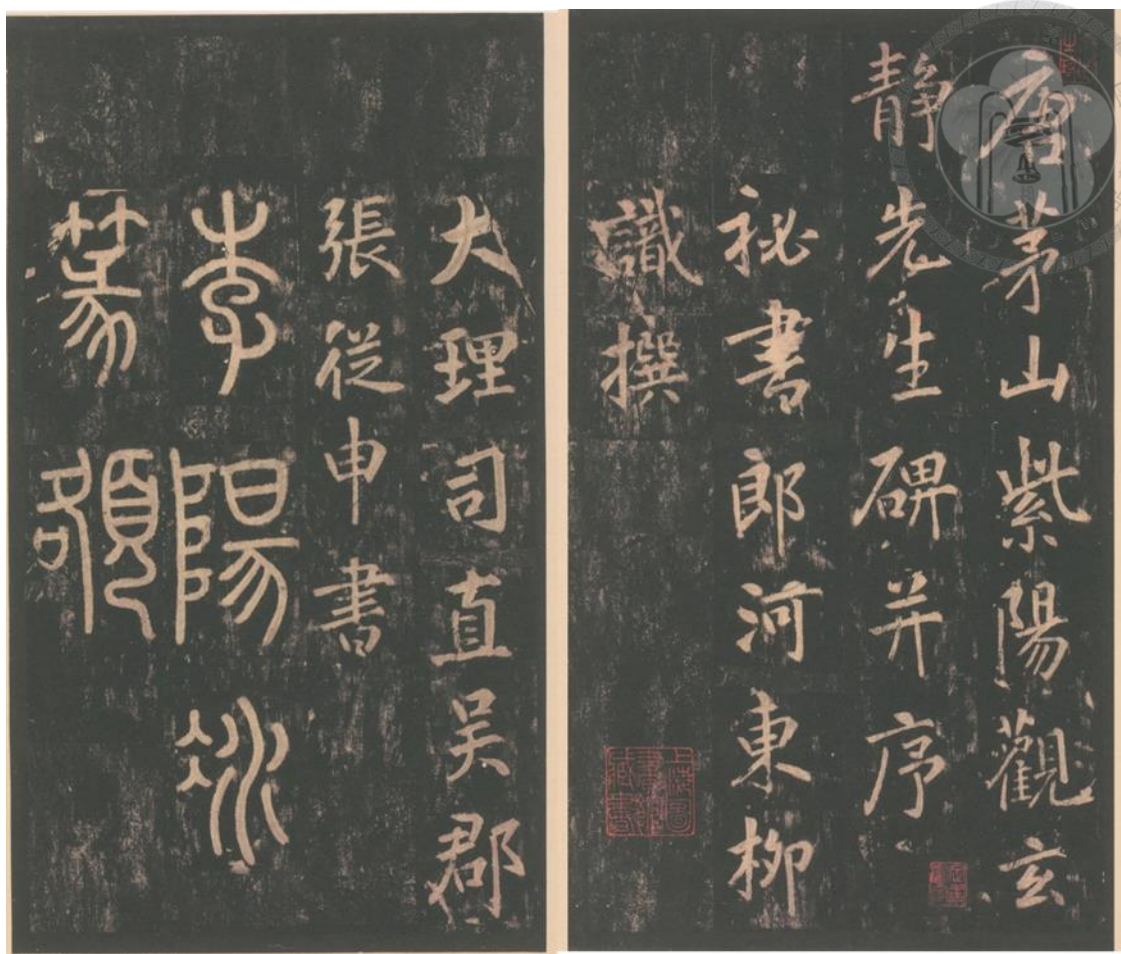 唐茅山紫陽觀玄
靜先生碑并序
祕書郎河東柳
識撰
大理司直吳郡
張從申書
李陽冰
篆額